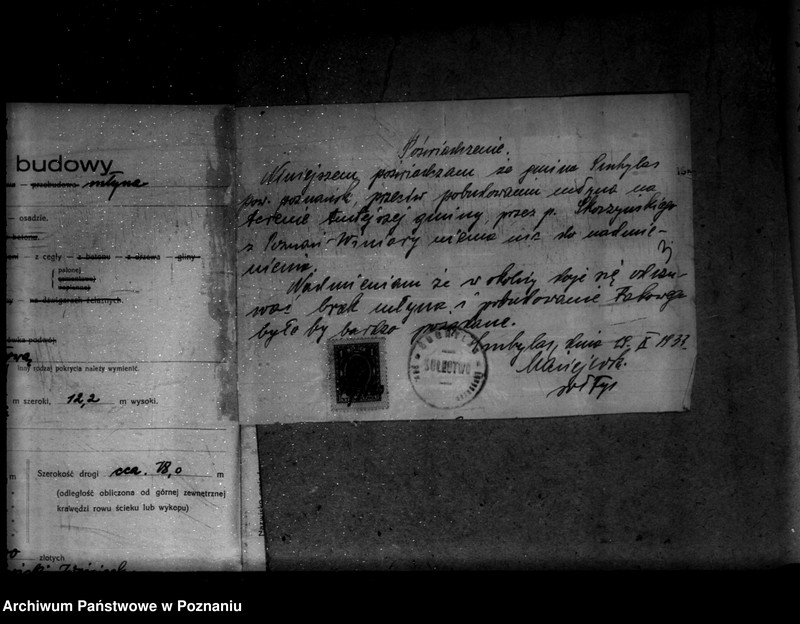 budowy
przebudowa — młyna
— osadzie.
— z cegły — z betonu — z drzewa — gliny
palonej
cementowej
na dźwigarach żelaznych
inny rodzaj pokrycia należy wymienić.
m szeroki, 12,2 m wysoki.
m
Szerokość drogi cca. 18,0 m
(odległość obliczona od górnej zewnętrznej
krawędzi rowu ścieku lub wykopu)
złotych
Poświadczenie.
Niniejszem poświadczam że gmina
pow. poznański, przeciw pobudowaniu młyna na
terenie tutejszej gminy, przez p. Skoczyńskiego
z Poznań-Winiary niema nic do nadmie-
nienia.
Nadmieniam że w okolicy daje się odczu-
wać brak młyna i pobudowanie takowego
było by bardzo pożądane.
dnia
SOŁECTWO
sołtys
Archiwum Państwowe w Poznaniu